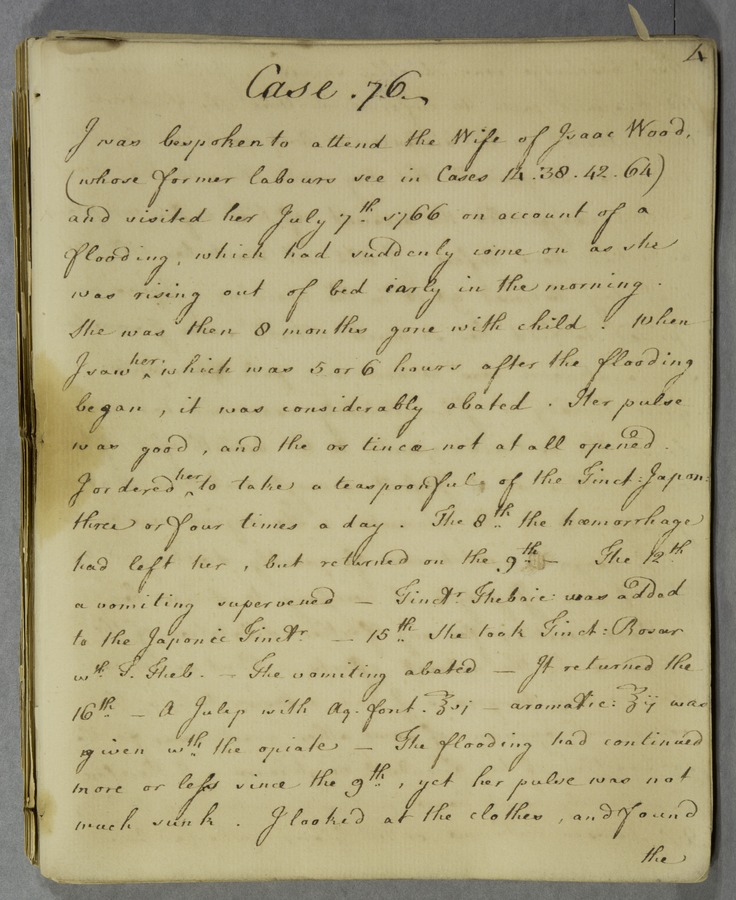 4
Case . 76.
I was bespoken to attend the Wife of Isaac Wood,
(whose former labours see in Cases 14 . 38 . 42 . 64)
and visited her July 7th 1766 on account of a
flooding, which had suddenly come on as she
was rising out of bed early in the morning .
She was then 8 months gone with child . When
I saw her, which was 5 or 6 hours after the flooding
began , it was considerably abated . Her pulse
was good , and the os tincæ not at all opened .
I ordered her to take a teaspoonful of the Tinct: Japon:
three or four times a day . The 8th the hœmorrhage
had left her , but returned on the 9th — The 12th
a vomiting supervened — Tinctr Thebaic: was added
to the Japonic Tinctr — 15th She took Tinct: Rosar
wth T. Theb. — The vomiting abated — It returned the
16th — A Julep with Aq. font. ℥vj — aromatic: ℥ij was
given wth the opiate — The flooding had continued
more or less since the 9th , yet her pulse was not
much sunk . I looked at the clothes , and found
the